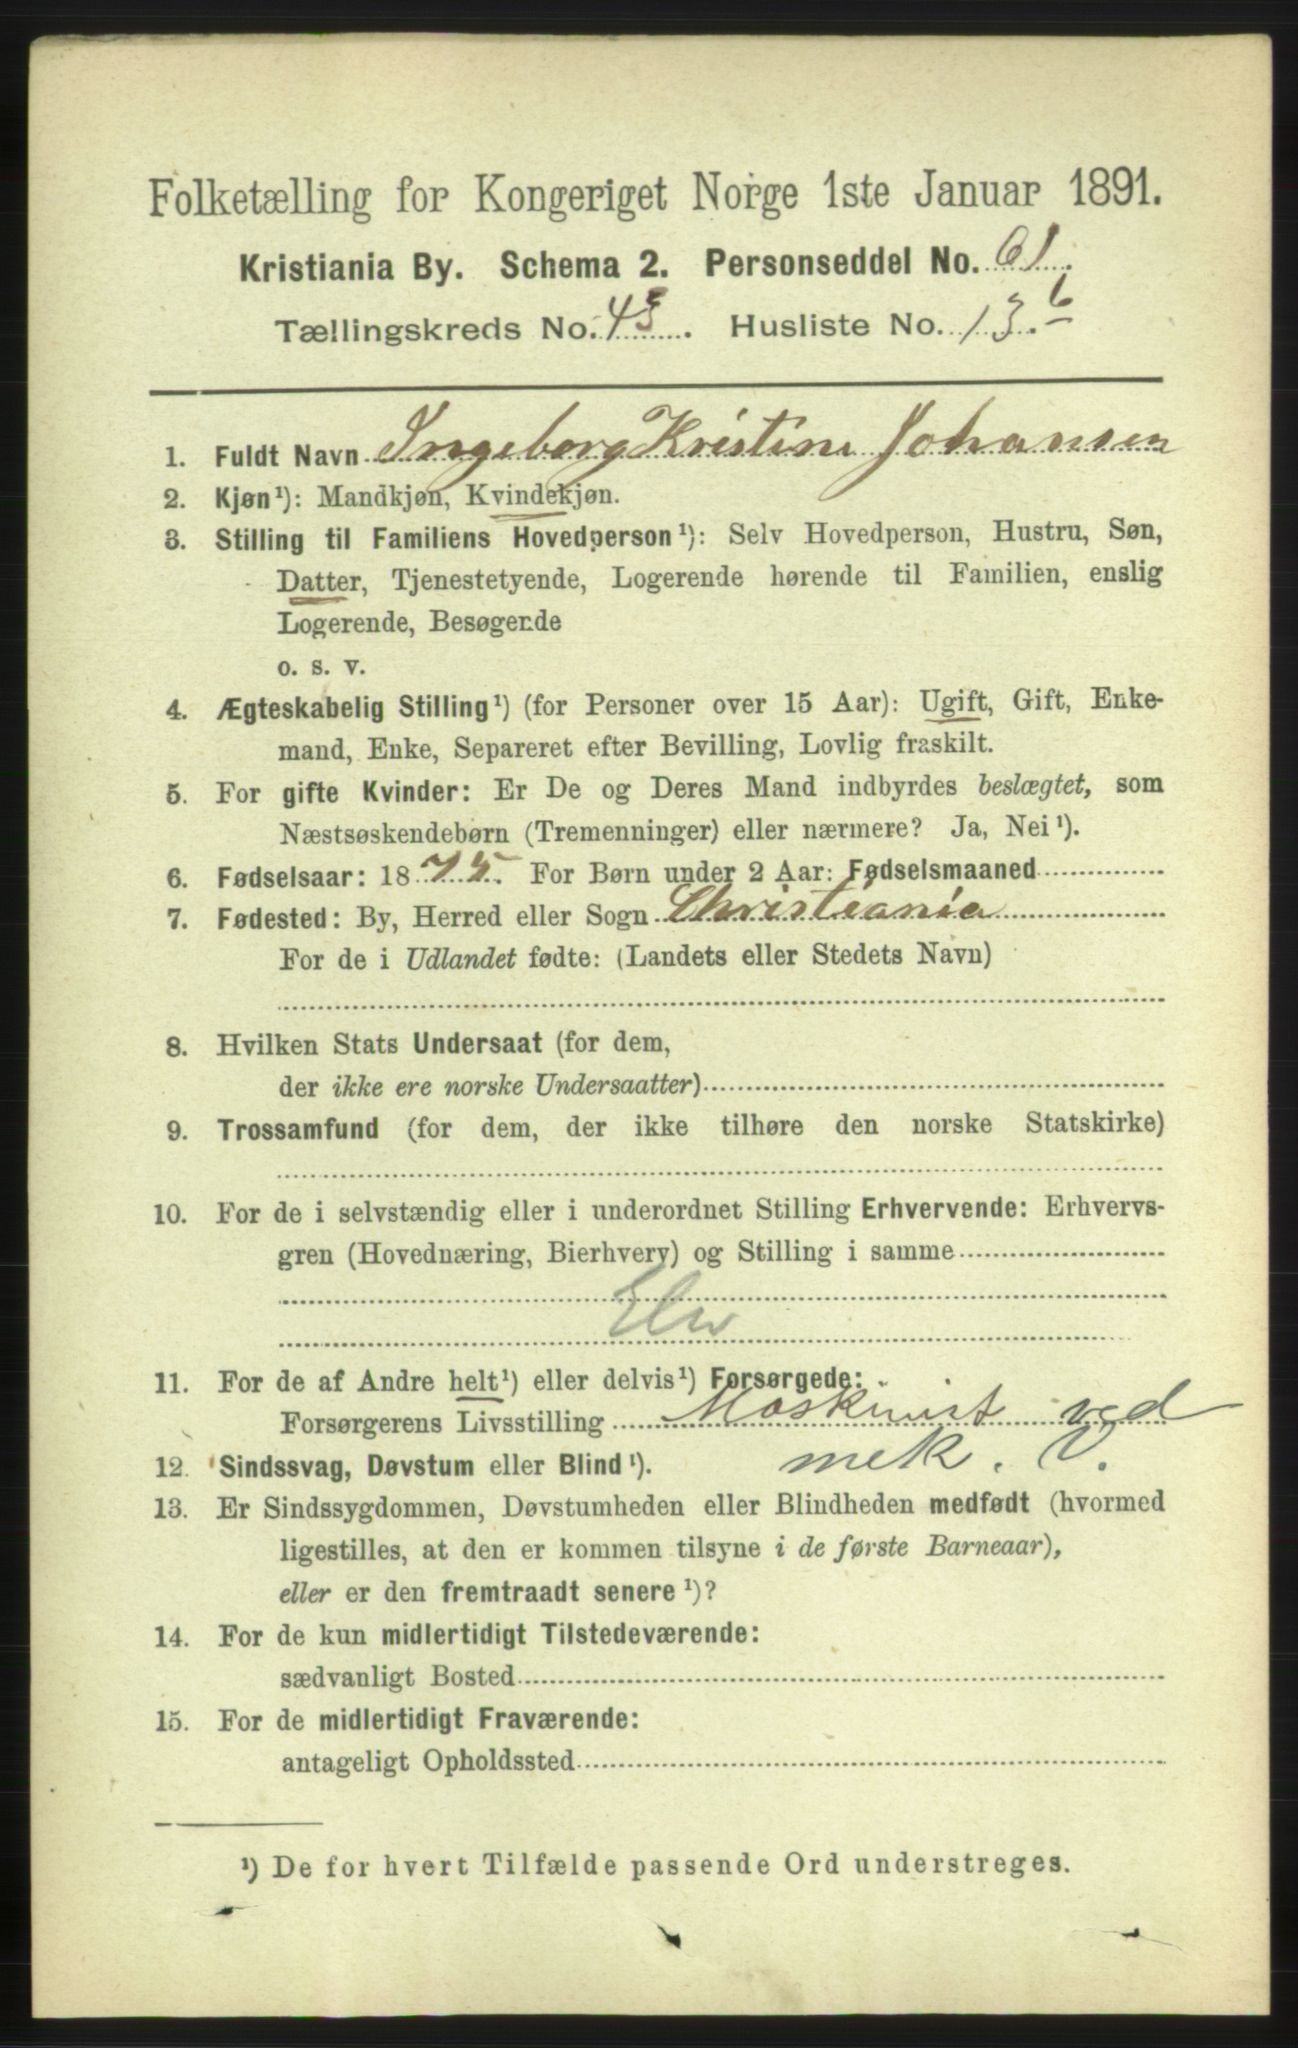 Folketælling for Kongeriget Norge 1ste Januar 1891.
Kristiania By. Schema 2. Personseddel No. 61.
Tællingskreds No. 43. Husliste No. 13.6
1. Fuldt Navn Ingeborg Kristine Johansen
2. Kjøn¹): Mandkjøn, Kvindekjøn.
3. Stilling til Familiens Hovedperson¹): Selv Hovedperson, Hustru, Søn,
Datter, Tjenestetyende, Logerende hørende til Familien, enslig
Logerende, Besøgende
o. s. v.
4. Ægteskabelig Stilling¹) (for Personer over 15 Aar): Ugift, Gift, Enke-
mand, Enke, Separeret efter Bevilling, Lovlig fraskilt.
5. For gifte Kvinder: Er De og Deres Mand indbyrdes beslægtet, som
Næstsøskendebørn (Tremenninger) eller nærmere? Ja, Nei¹).
6. Fødselsaar: 1875. For Børn under 2 Aar: Fødselsmaaned
7. Fødested: By, Herred eller Sogn Christiania
For de i Udlandet fødte: (Landets eller Stedets Navn)
8. Hvilken Stats Undersaat (for dem,
der ikke ere norske Undersaatter)
9. Trossamfund (for dem, der ikke tilhøre den norske Statskirke)
10. For de i selvstændig eller i underordnet Stilling Erhvervende: Erhvervs-
gren (Hovednæring, Bierhverv) og Stilling i samme
Elev
11. For de af Andre helt¹) eller delvis¹) Forsørgede:
Forsørgerens Livsstilling Maskinist ved
12. Sindssvag, Døvstum eller Blind¹). mek. V.
13. Er Sindssygdommen, Døvstumheden eller Blindheden medfødt (hvormed
ligestilles, at den er kommen tilsyne i de første Barneaar),
eller er den fremtraadt senere¹)?
14. For de kun midlertidigt Tilstedeværende:
sædvanligt Bosted
15. For de midlertidigt Fraværende:
antageligt Opholdssted
¹) De for hvert Tilfælde passende Ord understreges.